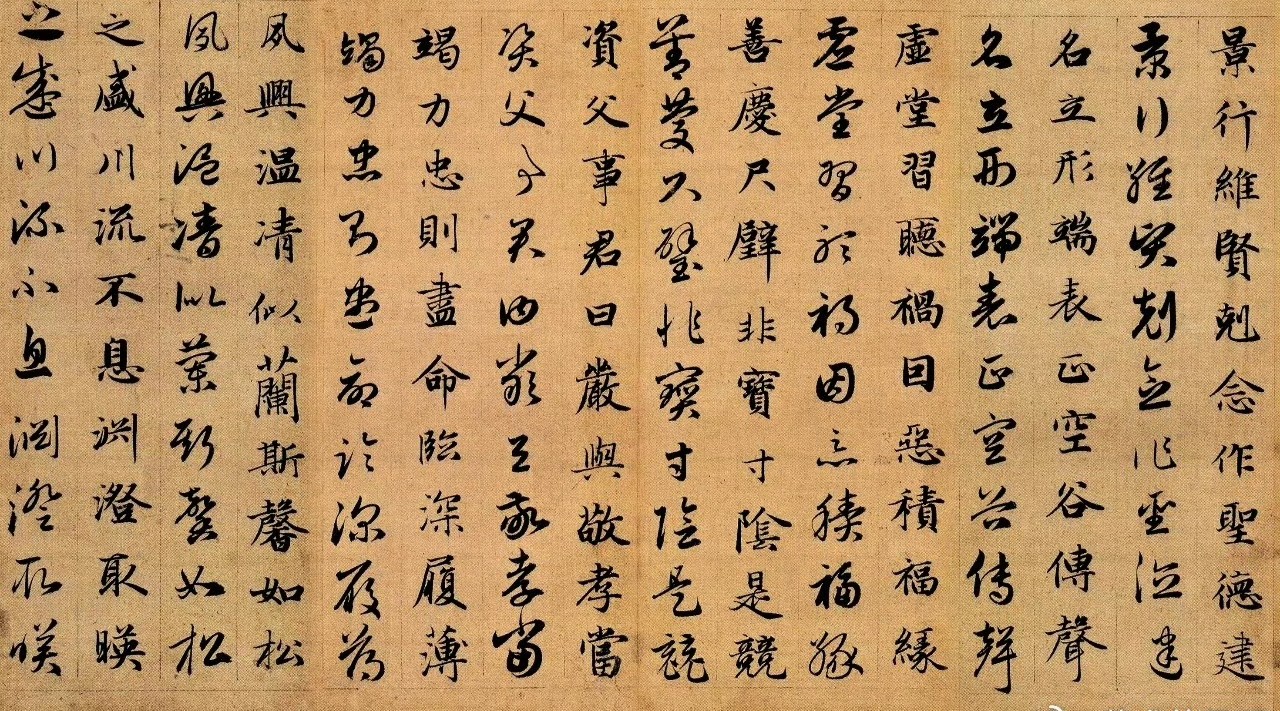 景行維賢剋念作聖德建
景行維賢剋念作聖德建
名立形端表正空谷傳聲
名立形端表正空谷傳聲
虛堂習聽禍因惡積福緣
虛堂習聽禍因惡積福緣
善慶尺璧非寶寸陰是競
善慶尺璧非寶寸陰是競
資父事君曰嚴與敬孝當
資父事君曰嚴與敬孝當
竭力忠則盡命臨深履薄
竭力忠則盡命臨深履薄
夙興温凊似蘭斯馨如松
夙興温凊似蘭斯馨如松
之盛川流不息渊澄取暎
之盛川流不息渊澄取暎